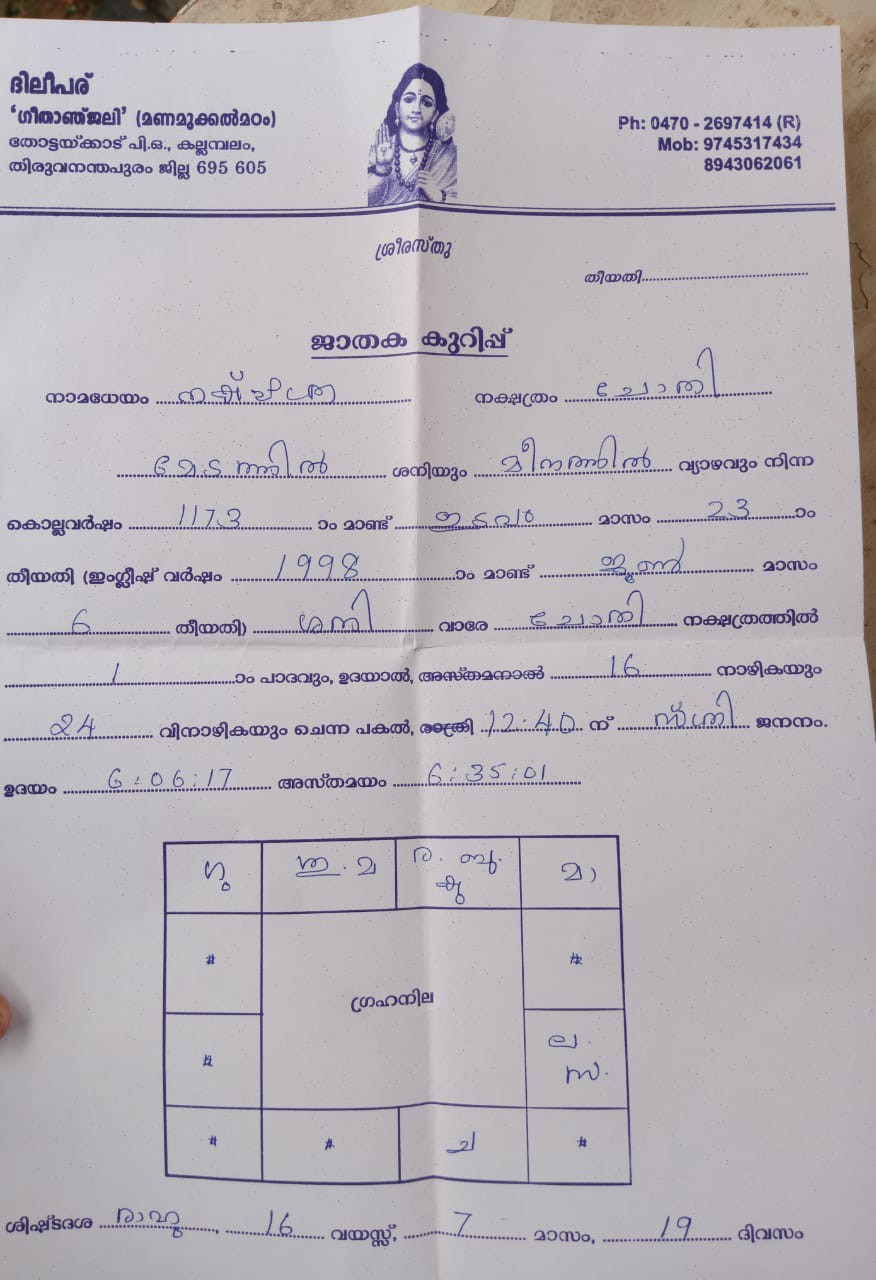 ദിലീപര്
'ഗീതാഞ്ജലി' (മണമുക്കൽമഠം)
തോട്ടയ്ക്കാട് പി.ഒ., കല്ലമ്പലം,
തിരുവനന്തപുരം ജില്ല 695 605
Ph: 0470 - 2697414 (R)
Mob: 9745317434
8943062061
ശ്രീരസ്തു
തീയതി
ജാതക കുറിപ്പ്
നാമധേയം നക്ഷത്ര നക്ഷത്രം ചോതി
മേടത്തിൽ ശനിയും മീനത്തിൽ വ്യാഴവും നിന്ന
കൊല്ലവർഷം 1173 ാം മാണ്ട് ഇടവം മാസം 23 ാം
തീയതി (ഇംഗ്ലീഷ് വർഷം 1998 ാം മാണ്ട് ജൂൺ മാസം
6 തീയതി) ശനി വാരേ ചോതി നക്ഷത്രത്തിൽ
1 ാം പാദവും, ഉദയാൽ, അസ്തമനാൽ 16 നാഴികയും
24 വിനാഴികയും ചെന്ന പകൽ, രാത്രി 12.40 ന് സ്ത്രീ ജനനം.
ഉദയം 6:06:17 അസ്തമയം 6:35:01
ഗു ശ. മ ര. ബു. കു മാ
ഗ്രഹനില
ല. സ.
ച
ശിഷ്ടദശ രാഹു, 16 വയസ്സ്, 7 മാസം, 19 ദിവസം